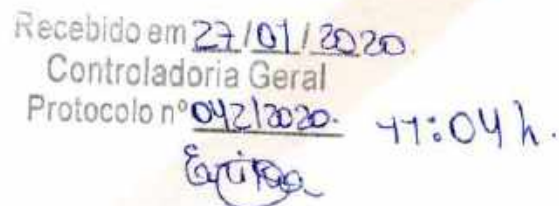 Recebido em 27/01/2020.
Controladoria Geral
Protocolo nº 042/2020. 11:04 h.